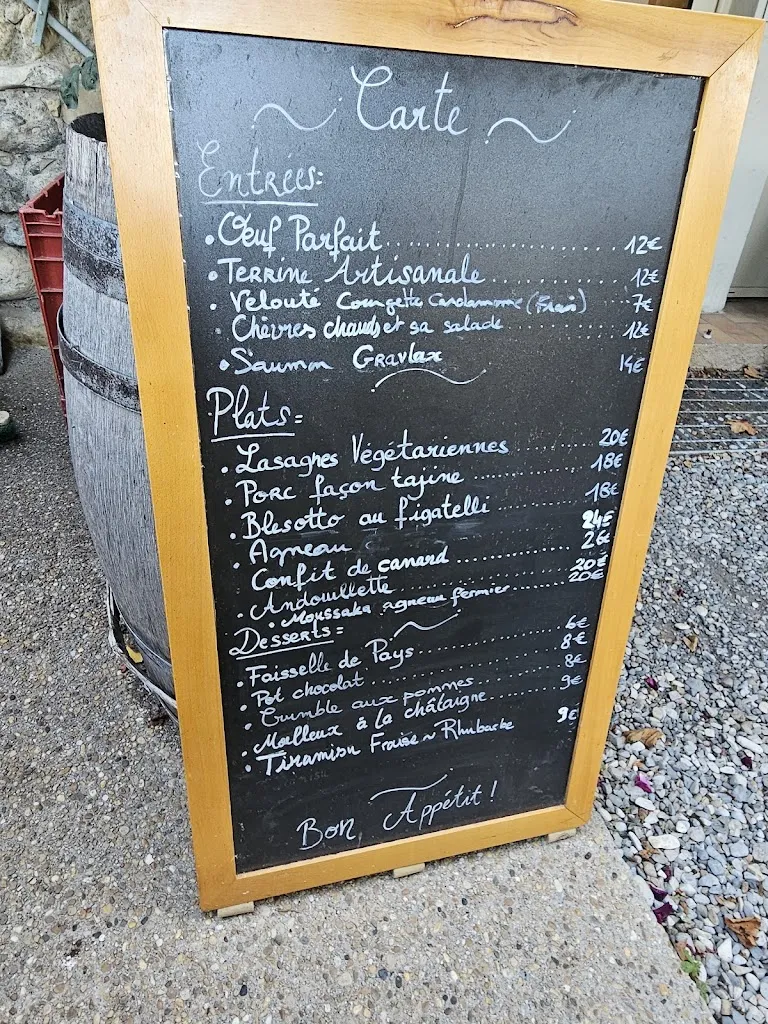 Carte
Entrées:
• Œuf Parfait 12€
• Terrine Artisanale 12€
• Velouté Courgette Cardamome (Frais) 7€
Chèvres chauds et sa salade 12€
• Saumon Gravlax 14€
Plats:
• Lasagnes Végétariennes 20€
• Porc façon tajine 18€
• Blésotto au figatelli 18€
• Agneau 24€
Confit de canard 26€
• Andouillette 20€
• Moussaka agneau fermier 20€
Desserts:
• Faisselle de Pays 6€
• Pot chocolat 8€
• Crumble aux pommes 8€
• Moelleux à la châtaigne 9€
• Tiramisu Fraise ~ Rhubarbe 9€
Bon Appétit !